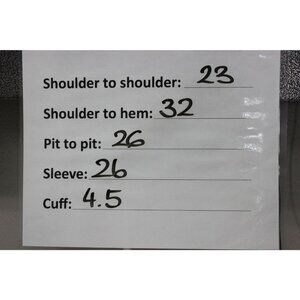 Shoulder to shoulder: 23
Shoulder to hem: 32
Pit to pit: 26
Sleeve: 26
Cuff: 4.5